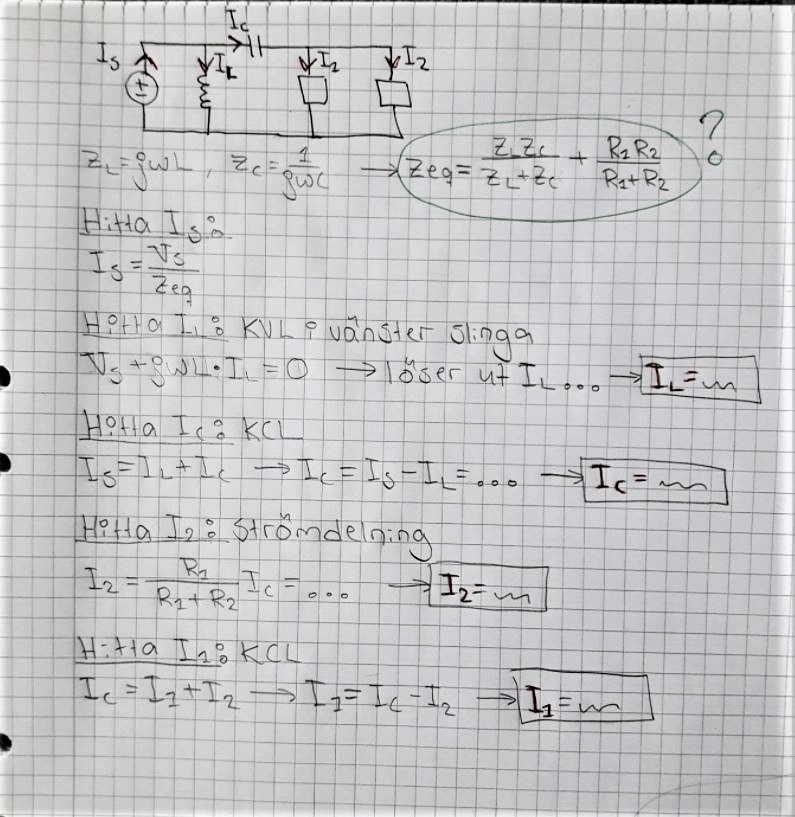 I_C
I_S I_L I_2 I_2
Z_L = jωL, Z_C = 1/jωC → Zeq = Z_L Z_C / Z_L + Z_C + R_1 R_2 / R_1 + R_2 ?
Hitta I_S:
I_S = V_S / Zeq
Hitta I_L: KVL i vänster slinga
V_S + jωL · I_L = 0 → löser ut I_L ... → I_L =
Hitta I_C: KCL
I_S = I_L + I_C → I_C = I_S - I_L = ... → I_C =
Hitta I_2: Strömdelning
I_2 = R_1 / R_1 + R_2 I_C = ... → I_2 =
Hitta I_1: KCL
I_C = I_1 + I_2 → I_1 = I_C - I_2 → I_1 =